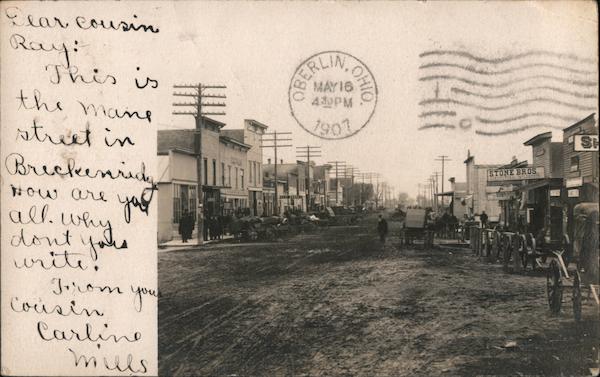 Dear cousin
Ray:
This is
the mane
street in
Breckenridg
How are you
all. Why
dont you
write.
From your
cousin
Carline
Mills
OBERLIN, OHIO.
MAY 16
4 30 PM
1907
STONE BROS.